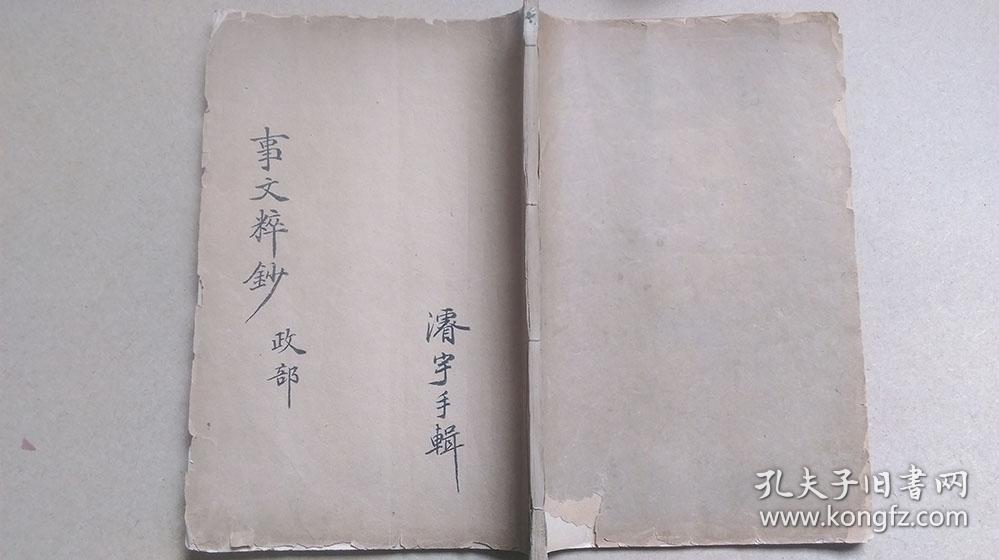 事文粹鈔
政部
濬宇手輯
孔夫子旧書网
www.kongfz.com